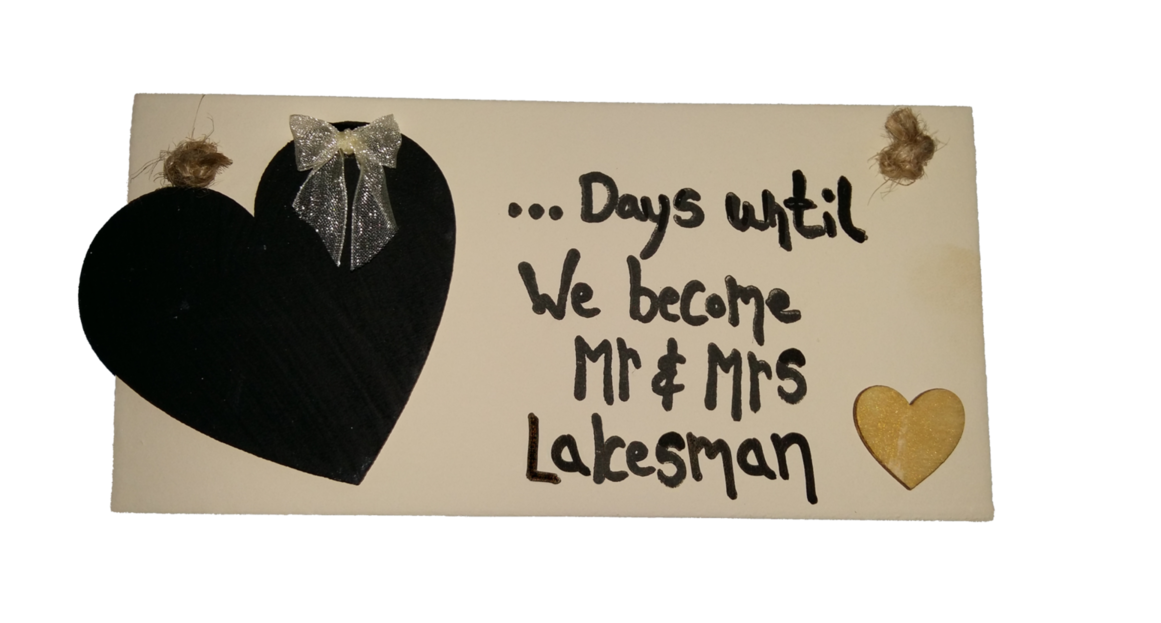 ... Days until
We become
Mr & Mrs
Lakesman